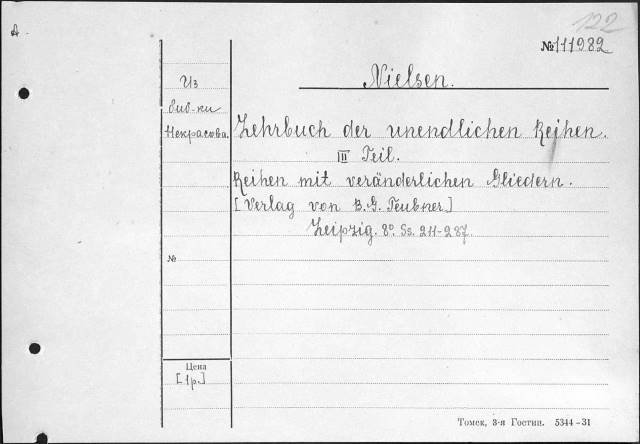 122
A
№111982
Из
биб-ки
Некрасова.
Nielsen.
Lehrbuch der unendlichen Reihen.
III Teil.
Reihen mit veränderlichen Gliedern.
[Verlag von B.G. Teubner]
Leipzig. 8º. Ss. 211-287.
№
Цена
[1р.]
Томск, 3-я Гостип. 5344-31